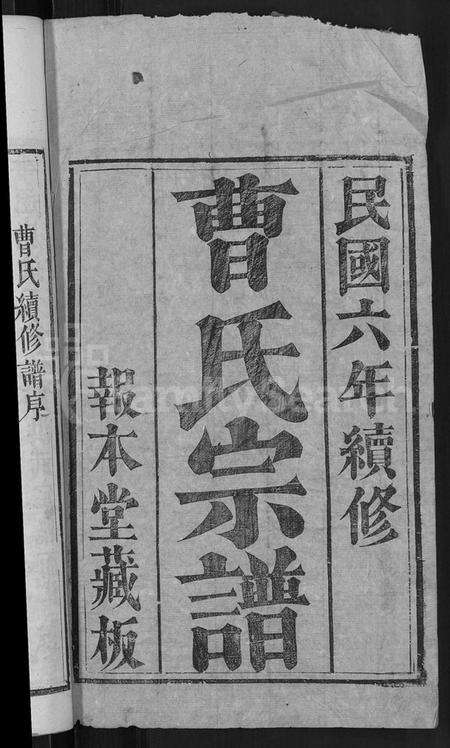 民國六年續修
曹氏宗譜
報本堂藏板
曹氏續修譜序